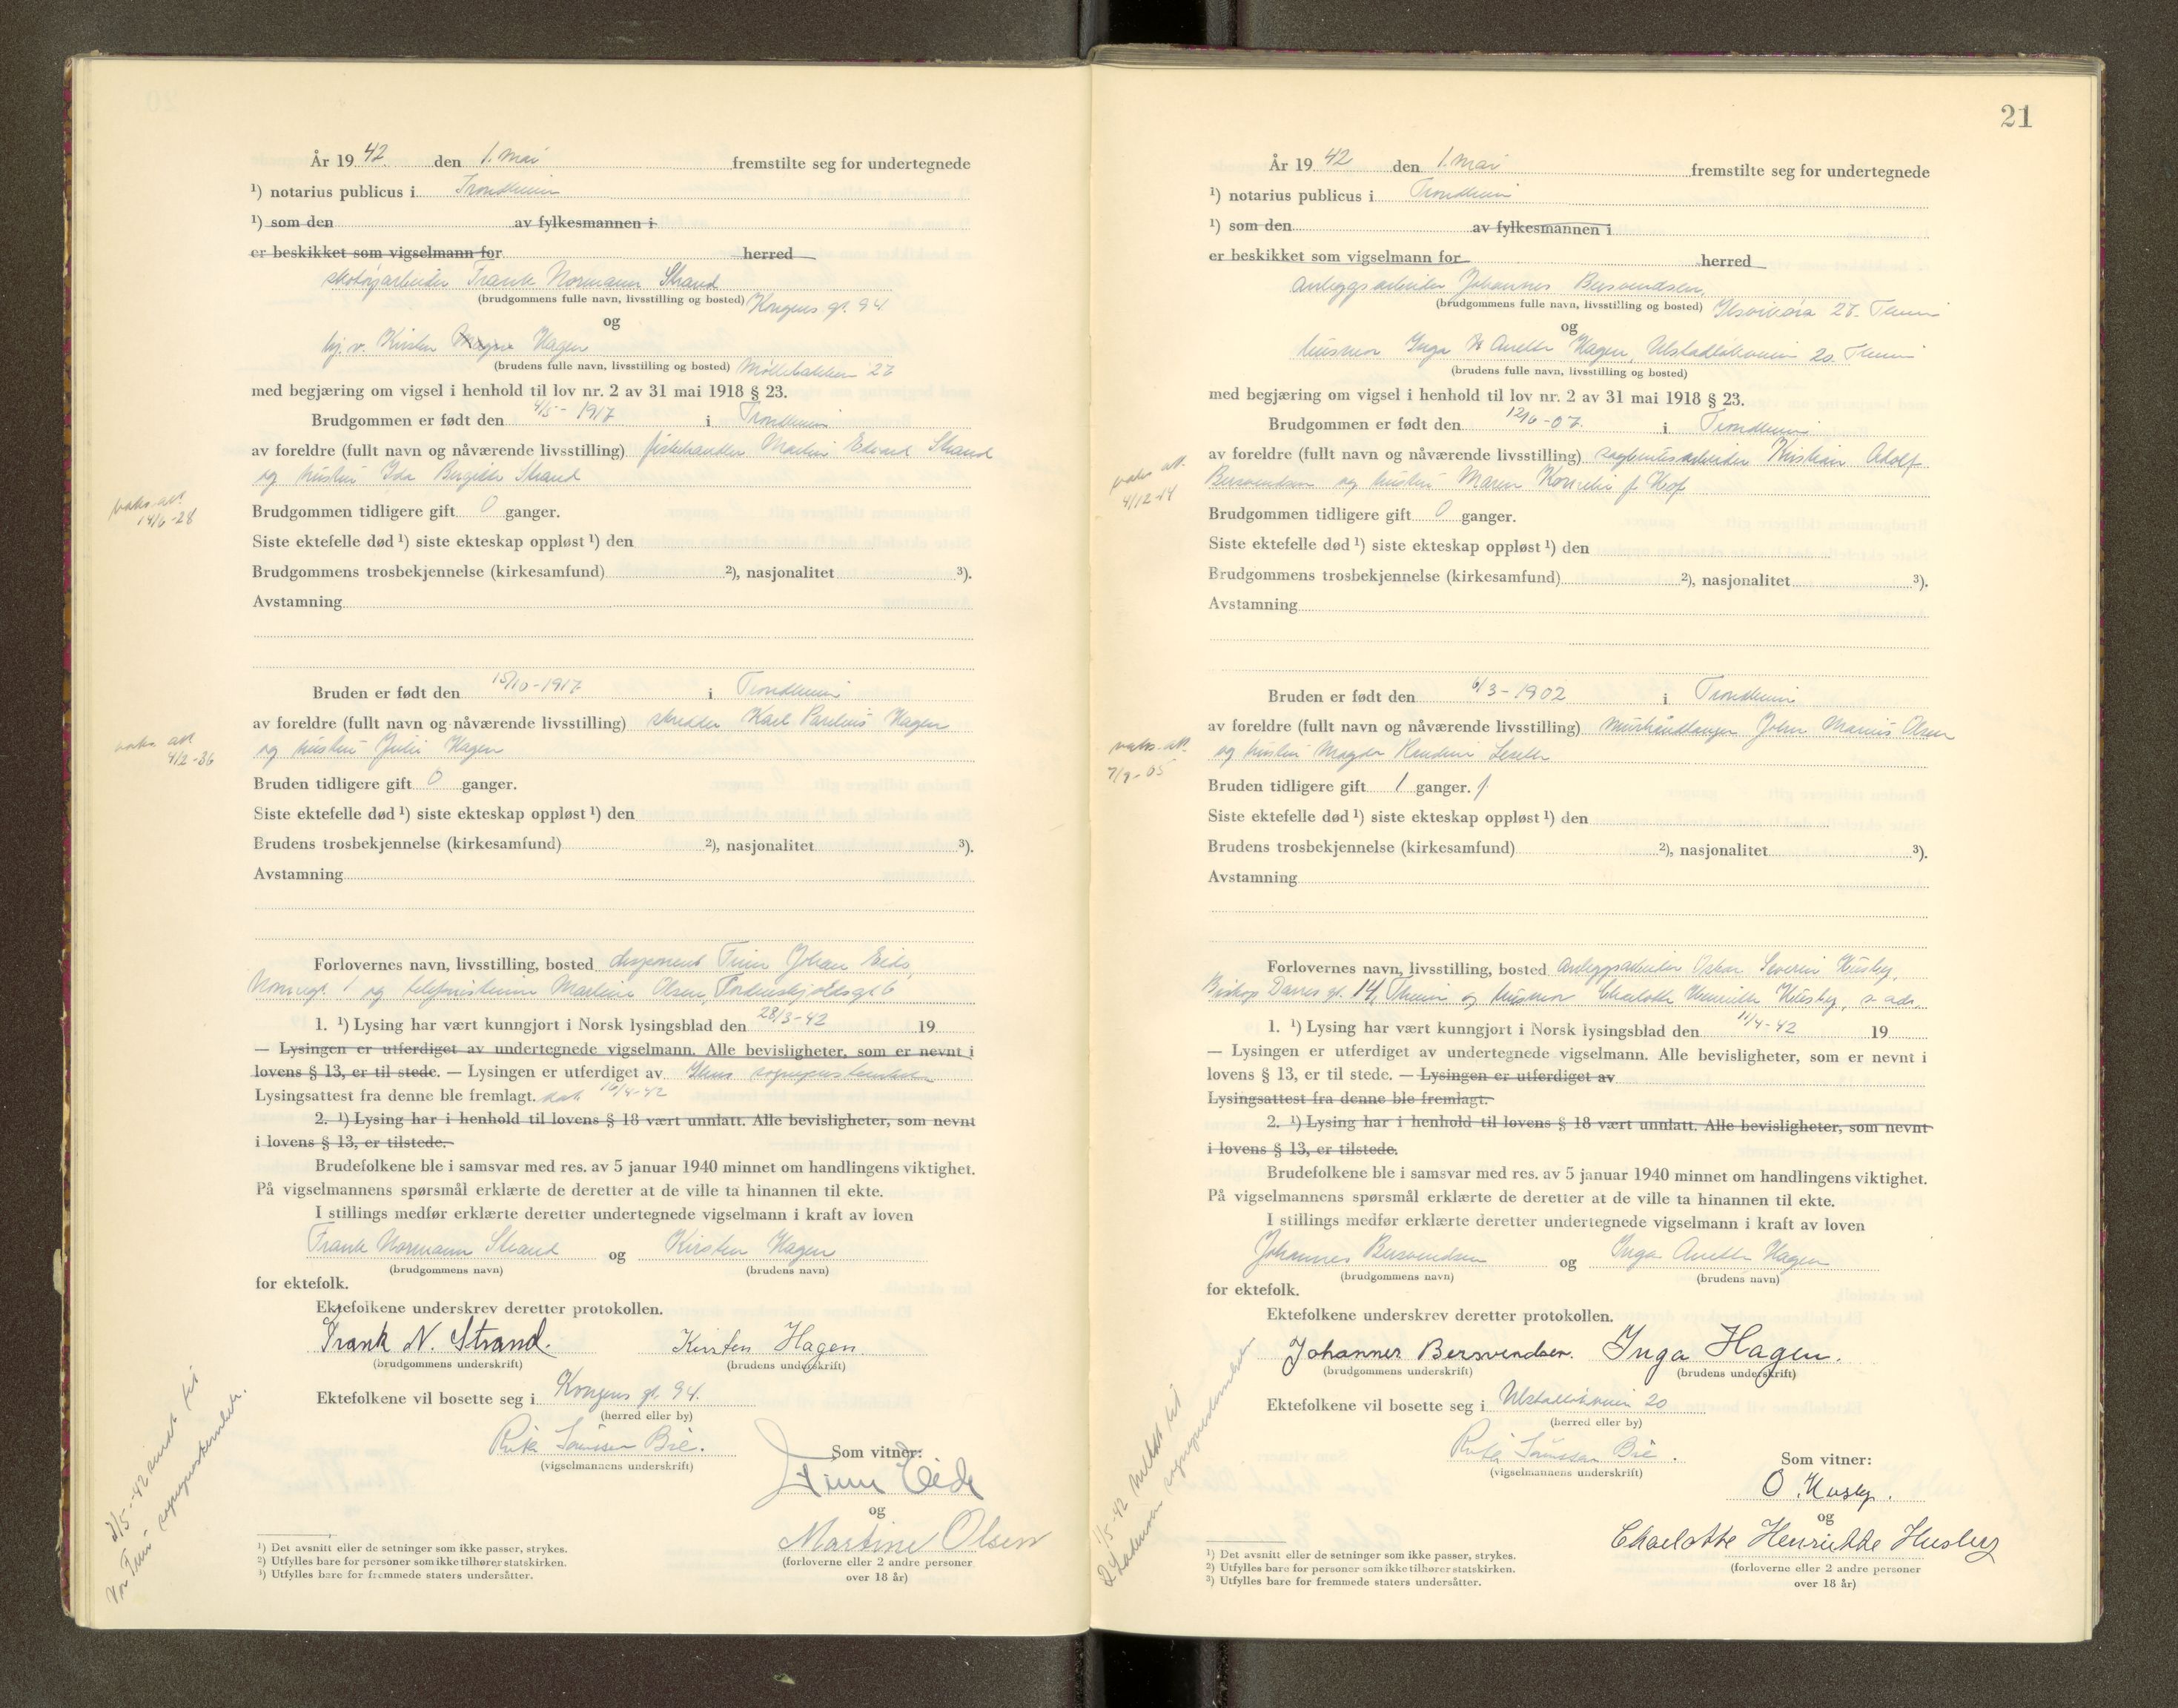 År 19 42 den 1. mai fremstilte seg for undertegnede
¹) notarius publicus i Trondheim
¹) som den av fylkesmannen i
er beskikket som vigselmann for herred
skotøyarbeider Frank Normann Strand
(brudgommens fulle navn, livsstilling og bosted) Kongens gt. 94
og
hj. v. Kirsten Hagen
(brudens fulle navn, livsstilling og bosted) Møllebakken 27
med begjæring om vigsel i henhold til lov nr. 2 av 31 mai 1918 § 23.
Brudgommen er født den 4/5-1917 i Trondheim
av foreldre (fullt navn og nåværende livsstilling) fiskehandler Martin Edvard Strand
og hustru Ida Birgitte Strand
vaks. att.
14/6-28
Brudgommen tidligere gift 0 ganger.
Siste ektefelle død ¹) siste ekteskap oppløst ¹) den
Brudgommens trosbekjennelse (kirkesamfund) ²), nasjonalitet ³).
Avstamning
Bruden er født den 15/10-1917 i Trondheim
av foreldre (fullt navn og nåværende livsstilling) skredder Karl Paulius Hagen
og hustru Julie Hagen
vaks. att.
4/2-36
Bruden tidligere gift 0 ganger.
Siste ektefelle død ¹) siste ekteskap oppløst ¹) den
Brudens trosbekjennelse (kirkesamfund) ²), nasjonalitet ³).
Avstamning
Forlovernes navn, livsstilling, bosted disponent Finn Johan Eide,
Nonnegt. 1 og telefonistinne Martine Olsen, Tordenskjoldsgt 6
1. ¹) Lysing har vært kunngjort i Norsk lysingsblad den 28/3-42 19
— Lysingen er utferdiget av undertegnede vigselmann. Alle bevisligheter, som er nevnt i
lovens § 13, er til stede. — Lysingen er utferdiget av Ilens sogneprestembete
Lysingsattest fra denne ble fremlagt. dat. 16/4-42
2. ¹) Lysing har i henhold til lovens § 18 vært unnlatt. Alle bevisligheter, som nevnt
i lovens § 13, er tilstede.
Brudefolkene ble i samsvar med res. av 5 januar 1940 minnet om handlingens viktighet.
På vigselmannens spørsmål erklærte de deretter at de ville ta hinannen til ekte.
I stillings medfør erklærte deretter undertegnede vigselmann i kraft av loven
Frank Normann Strand og Kirsten Hagen
(brudgommens navn) (brudens navn)
for ektefolk.
Ektefolkene underskrev deretter protokollen.
Frank N. Strand. Kirsten Hagen
(brudgommens underskrift) (brudens underskrift)
Ektefolkene vil bosette seg i Kongens gt. 94.
(herred eller by)
(vigselmannens underskrift)
Som vitner:
Finn Eide
og
Martine Olsen
(forloverne eller 2 andre personer
over 18 år)
¹) Det avsnitt eller de setninger som ikke passer, strykes.
²) Utfylles bare for personer som ikke tilhører statskirken.
³) Utfylles bare for fremmede staters undersåtter.
2/5-42 sendt til
Vor Frue sogneprestembete.
21
År 19 42 den 1. mai fremstilte seg for undertegnede
¹) notarius publicus i Trondheim
¹) som den av fylkesmannen i
er beskikket som vigselmann for herred
Anleggsarbeider Johannes Bersvendsen,
(brudgommens fulle navn, livsstilling og bosted) Ilsvikøra 27. Theim
og
husmor Inga Anette Hagen, 20. Theim
(brudens fulle navn, livsstilling og bosted)
med begjæring om vigsel i henhold til lov nr. 2 av 31 mai 1918 § 23.
Brudgommen er født den 12/6-07 i Trondheim
av foreldre (fullt navn og nåværende livsstilling) sagbruksarbeider Kristian Adolf
Bersvendsen og hustru Maren Kornelie f. Hof
vaks. att.
4/12-14
Brudgommen tidligere gift 0 ganger.
Siste ektefelle død ¹) siste ekteskap oppløst ¹) den
Brudgommens trosbekjennelse (kirkesamfund) ²), nasjonalitet ³).
Avstamning
Bruden er født den 6/3-1902 i Trondheim
av foreldre (fullt navn og nåværende livsstilling) murhåndlanger Johan Marius Olsen
og hustru Magda
vaks. att.
7/9-05
Bruden tidligere gift 1 ganger. f.
Siste ektefelle død ¹) siste ekteskap oppløst ¹) den
Brudens trosbekjennelse (kirkesamfund) ²), nasjonalitet ³).
Avstamning
Forlovernes navn, livsstilling, bosted Anleggsarbeider Oskar Severin Husby,
Biskop Darres gt. 14, Theim og husmor Charlotte Henriette Husby, s. adr.
1. ¹) Lysing har vært kunngjort i Norsk lysingsblad den 11/4-42 19
— Lysingen er utferdiget av undertegnede vigselmann. Alle bevisligheter, som er nevnt i
lovens § 13, er til stede. — Lysingen er utferdiget av
Lysingsattest fra denne ble fremlagt.
2. ¹) Lysing har i henhold til lovens § 18 vært unnlatt. Alle bevisligheter, som nevnt
i lovens § 13, er tilstede.
Brudefolkene ble i samsvar med res. av 5 januar 1940 minnet om handlingens viktighet.
På vigselmannens spørsmål erklærte de deretter at de ville ta hinannen til ekte.
I stillings medfør erklærte deretter undertegnede vigselmann i kraft av loven
Johannes Bersvendsen og Inga Anette Hagen
(brudgommens navn) (brudens navn)
for ektefolk.
Ektefolkene underskrev deretter protokollen.
Johannes Bersvendsen. Inga Hagen.
(brudgommens underskrift) (brudens underskrift)
Ektefolkene vil bosette seg i 20
(herred eller by)
(vigselmannens underskrift)
Som vitner:
O. Husby.
og
Charlotte Henriette Husby
(forloverne eller 2 andre personer
over 18 år)
¹) Det avsnitt eller de setninger som ikke passer, strykes.
²) Utfylles bare for personer som ikke tilhører statskirken.
³) Utfylles bare for fremmede staters undersåtter.
2/5-42 meldt til
Lademoen sogneprestembete